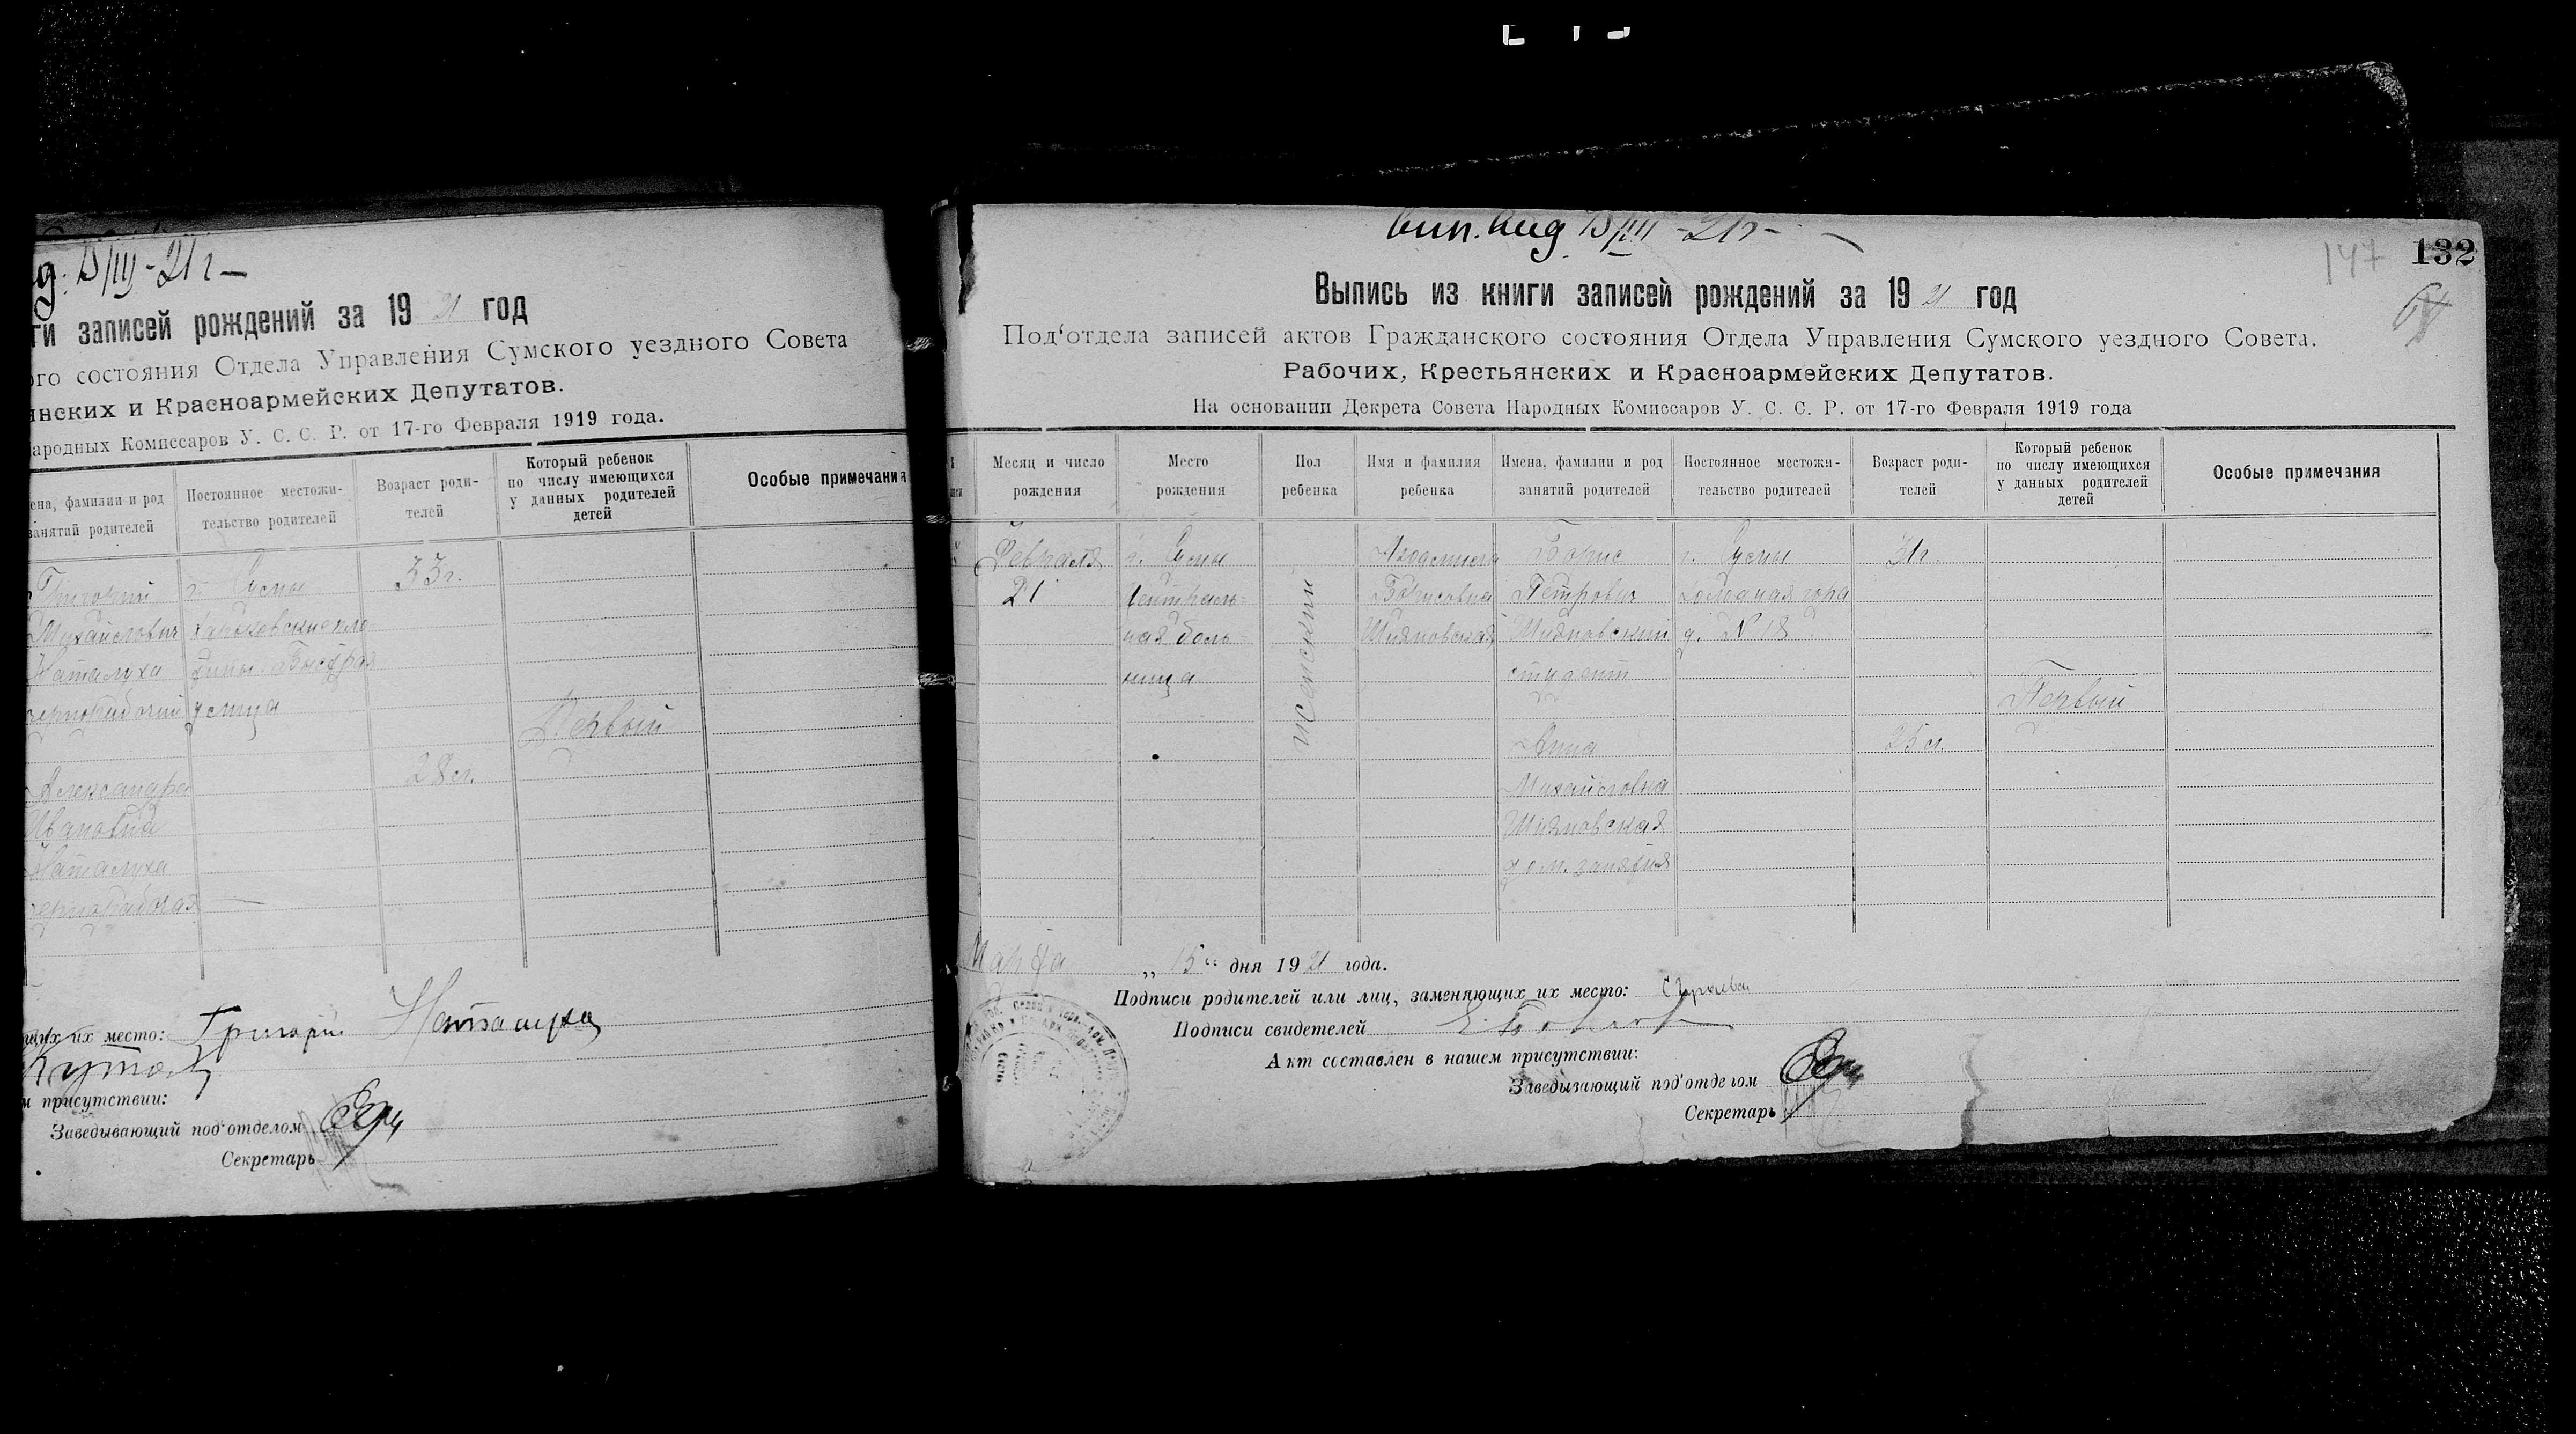 Д/III-21 г
ги записей рождений за 19 21 год
ого состояния Отдела Управления Сумского уездного Совета
янских и Красноармейских Депутатов.
ародных Комиссаров У. С. С. Р. от 17-го Февраля 1919 года.
ена, фамилии и род занятий родителей
Постоянное местожительство родителей
Возраст родителей
Который ребенок по числу имеющихся у данных родителей детей
Особые примечания
Григорий г. Сумы 33 г.
Михайлович
Наталуха
чернорабочий улица
Первый
Александра 28 л.
Ивановна
Наталуха
чернорабочая
щих их место: Григорий Наталуха
м присутствии:
Заведывающий под'отделом
Секретарь
вип. вид. 15/III-21 г-
147 132
Выпись из книги записей рождений за 19 21 год
Под'отдела записей актов Гражданского состояния Отдела Управления Сумского уездного Совета.
Рабочих, Крестьянских и Красноармейских Депутатов.
На основании Декрета Совета Народных Комиссаров У. С. С. Р. от 17-го Февраля 1919 года
Месяц и число рождения
Место рождения
Пол ребенка
Имя и фамилия ребенка
Имена, фамилии и род занятий родителей
Постоянное местожительство родителей
Возраст родителей
Который ребенок по числу имеющихся у данных родителей детей
Особые примечания
Февраля г. Сумы Борис г. Сумы 31 г.
21 Централь- Борисовна Петрович Холодная гора
ная боль- женский Шияновская Шияновский д. № 18
ница студент
Первый
Анна 25 л.
Михайловна
Шияновская
дом. занятия
Марта „ 15 “ дня 19 21 года.
Подписи родителей или лиц, заменяющих их место:
Подписи свидетелей
Акт составлен в нашем присутствии:
Заведызающий под'отделом
Секретарь